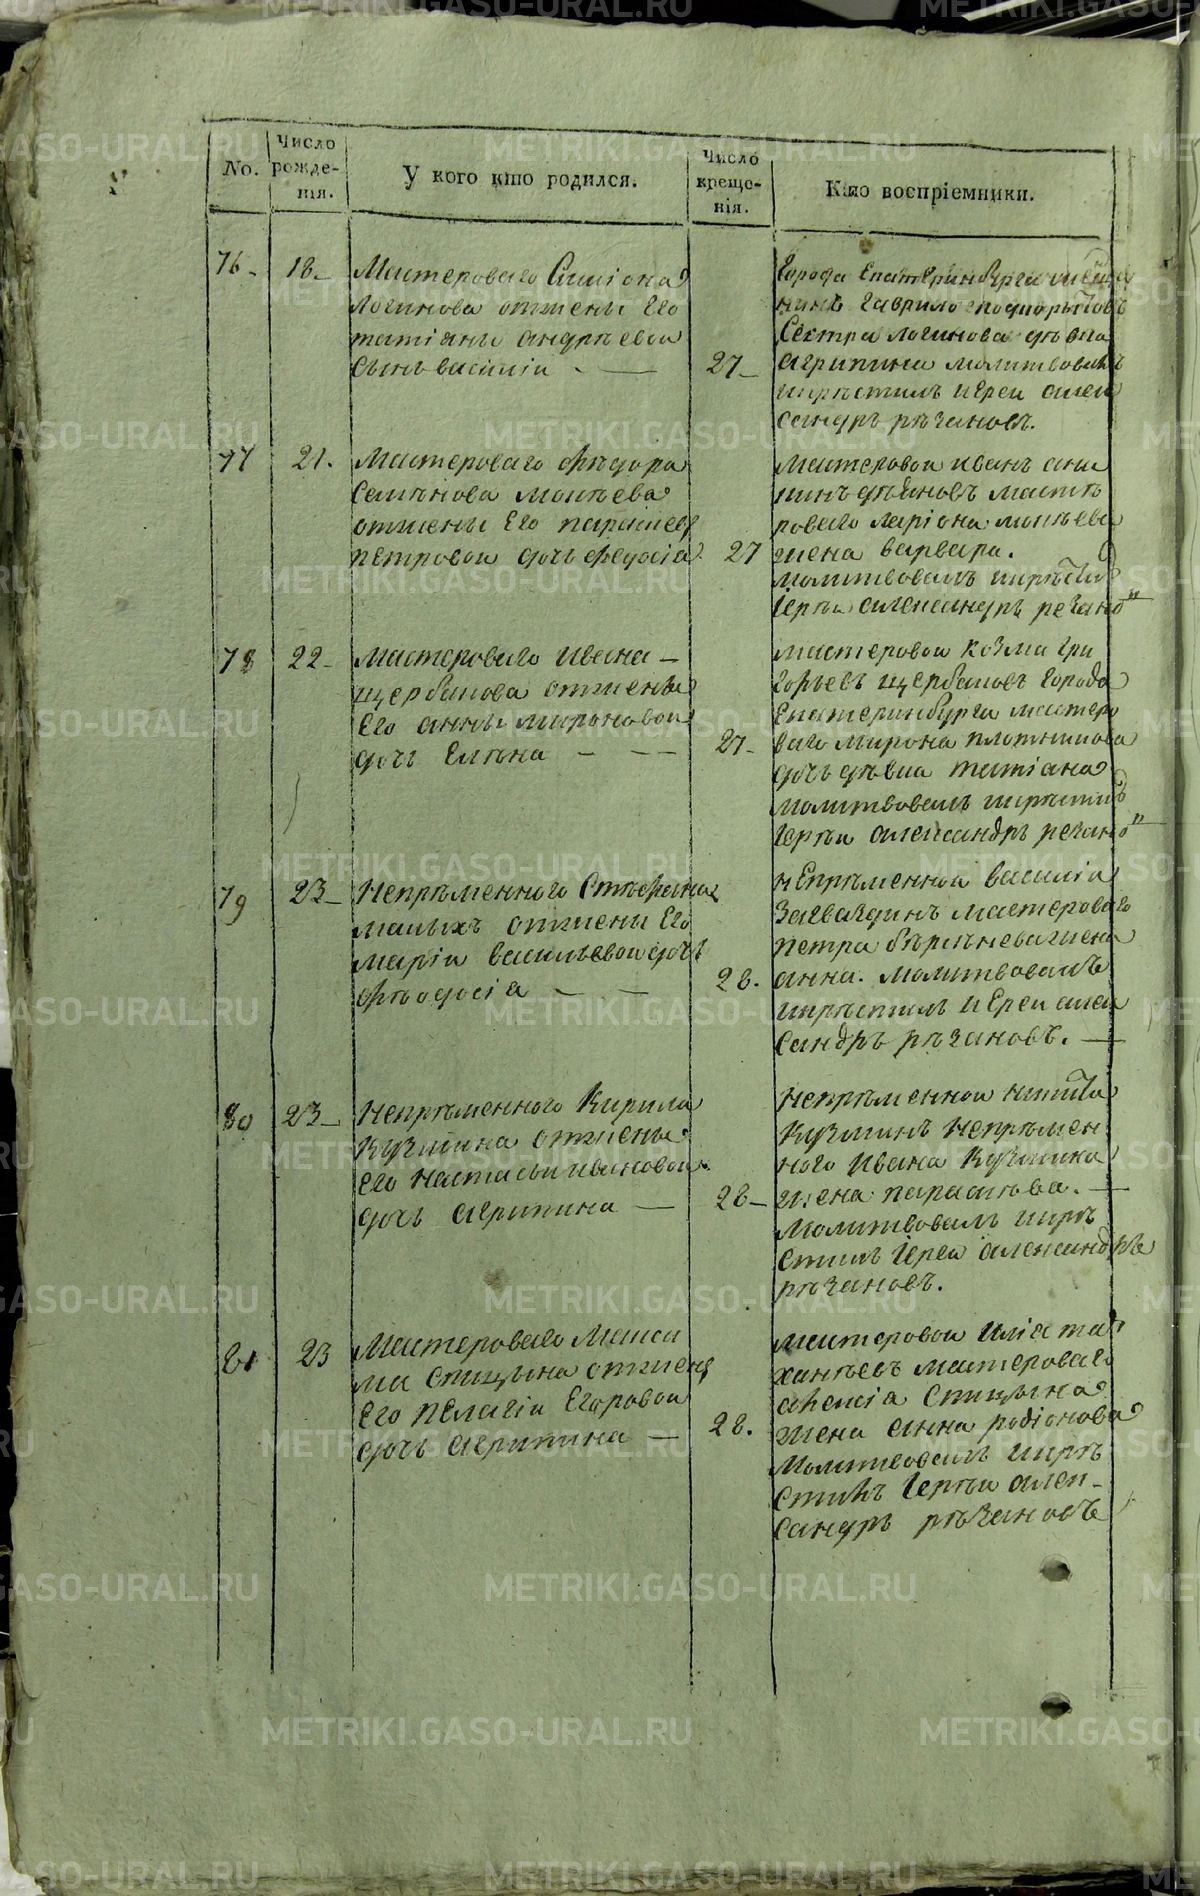 No.
Число рожде-нія.
У кого кто родился.
Число креще-нія.
Кто воспріемники.
76
18
Мастероваго Симіона
Логинова отжены Его
татіаны андрѣевои
Сынъ василіи
27
города Екатеринбурга мѣща
нинъ гаврило
Сестра логинова дѣвка
агрипина молитвовалъ
икрѣстилъ иЕреи алек
сандръ рѣзановъ.
77
21.
Мастероваго ѳѣдора
Семѣнова мокѣева
отжены Его параскев
петровои дочь федосіа
27
Мастеровои иванъ
мастѣ
роваго ларіона мокѣева
жена варвара.
Молитвовалъ икрѣстил
Іерѣи александръ резано
78
22
Мастероваго ивана
щербакова отжены
Его анны мироновои
дочь Елѣна
27
мастеровои козма гри
горьевъ щербаковъ города
Екатеринбурга мастеро
ваго мирона плотникова
дочь дѣвка татіана
молитвовалъ икрѣстил
Іерѣи александръ резано
79
23
Непрѣменного Стѣфана
малыхъ отжены Его
маріи васильевои дочь
ѳѣодосіа
28.
непрѣменнои василіи
мастероваго
петра жена
анна. молитвовалъ
икрѣстилъ иЕреи алек
сандръ рѣзановъ.
80
23
Непрѣменного Кирила
Кузмина отжены
Его настасьи ивановои
дочь агрипина
28
Непрѣменнои никита
Кузминъ Непрѣмен
ного ивана Кузмина
жена параскѣва.
Молитвовалъ икрѣ
стилъ Іереи александръ
рѣзановъ.
81
23
Мастероваго Макси
ма спицына отжены
Его пелагіи Егоровои
дочь агрипина
28.
мастеровои иліа та
ханѣевъ мастероваго
спицына
жена анна родіонова
молитвовалъ икрѣ
стилъ Іерѣи алек-
сандръ рѣзановъ
METRIKI.GASO-URAL.RU